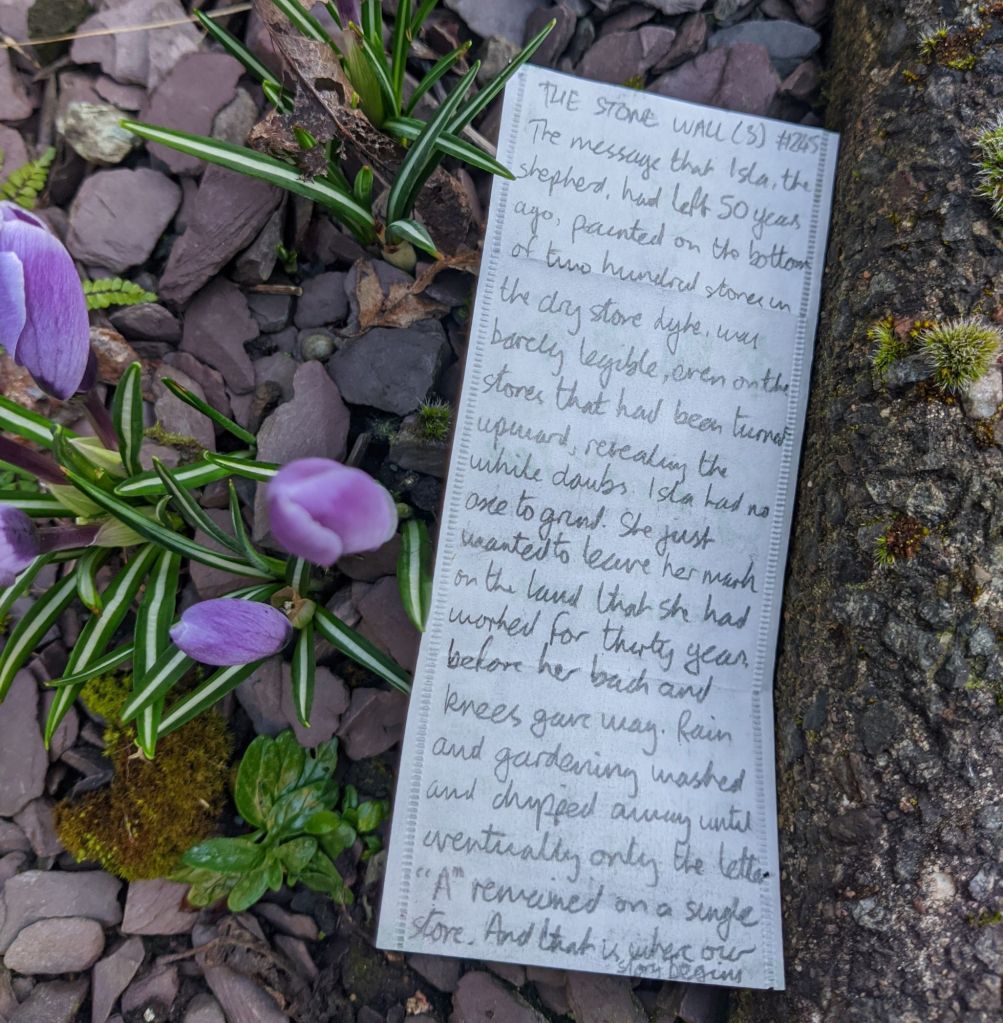 THE STONE WALL (S) #1245
The message that Isla, the
shepherd, had left 50 years
ago, painted on the bottom
of two hundred stones in
the dry stone dyke, was
barely legible, even on the
stones that had been turned
upward, revealing the
white daubs. Isla had no
axe to grind. She just
wanted to leave her mark
on the land that she had
worked for thirty years
before her back and
knees gave way. Rain
and gardening washed
and chipped away until
eventually only the letter
"A" remained on a single
stone. And that is where our
story begins